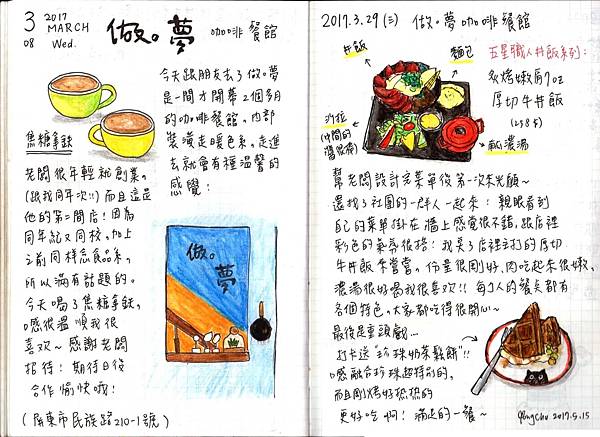 3/08
2017
MARCH
Wed.
做。夢 咖啡餐館
今天跟朋友去了做。夢
是一間才開幕2個多月
的咖啡餐館。內部
裝潢走暖色系。走進
去就會有種溫馨的
感覺!
焦糖拿鐵
老闆很年輕就創業。
(跟我同年次!!) 而且這是
他的第二間店!因為
同年紀又同校。加上
之前同樣念食品系。
所以滿有話題的。
今天喝了焦糖拿鐵。
口感很溫順我很
喜歡~ 感謝老闆
招待!期待日後
合作愉快哦!
做。
夢
(屏東市民族路210-1號)
2017.3.29(三) 做。夢咖啡餐館
丼飯
麵包
沙拉
(中間的
醬很棒)
南瓜濃湯
五星職人丼飯系列:
炙烤嫩肩7oz
厚切牛丼飯
(258$)
幫老闆設計完菜單後第一次來光顧~
還找了社團的一群人一起來!親眼看到
自己的菜單掛在牆上感覺很不錯。跟店裡
彩色的氣氛很搭!我点了店裡主打的厚切
牛丼飯來嘗嘗。份量很剛好、肉吃起來很嫩、
濃湯很好喝我很喜歡!! 每個人的餐点都有
各個特色。大家都吃得很開心~
最後是重頭戲...
打卡送"珍珠奶茶鬆餅"!!
口感融合珍珠超特別的。
而且剛烤好熱熱的
更好吃啊!滿足的一餐~
2017.5.15